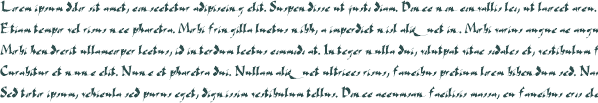 Lorem ipsum dolor sit amet, consectetur adipiscing elit. Suspendisse ut justo diam. Donec non enim convallis leo, ut laoreet arcu.
Etiam tempor vel risus nec pharetra. Morbi fringilla luctus nibh, a imperdiet nisl aliquet in. Morbi varius augue ac augue
Morbi hendrerit ullamcorper lectus, id interdum lectus commodo at. Integer nulla dui, volutpat vitae sodales et, vestibulum
Curabitur et nunc elit. Nunc et pharetra dui. Nullam aliquet ultrices risus, faucibus pretium lorem bibendum sed.
Sed tortor ipsum, vehicula sed purus eget, dignissim vestibulum tellus. Donec accumsan facilisis massa, eu faucibus eros